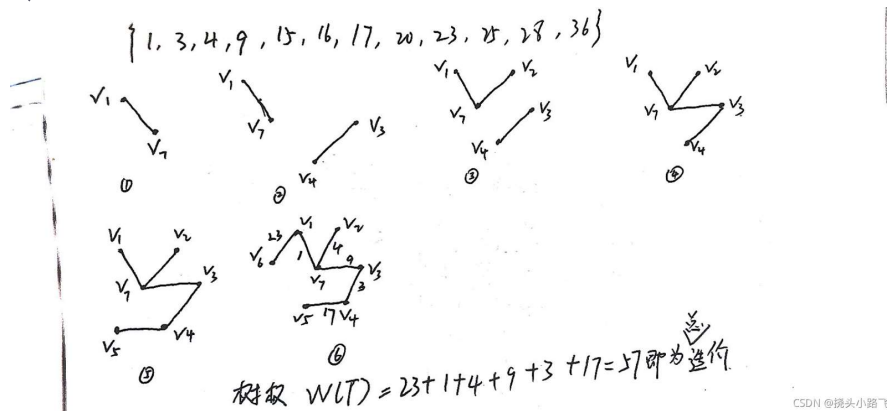 {1, 3, 4, 9, 15, 16, 17, 20, 23, 25, 28, 36}
V1 V7 ①
V1 V7 V3 V4 ②
V1 V2 V7 V3 V4 ③
V1 V2 V7 V3 V4 ④
V1 V2 V7 V3 V5 V4 ⑤
23 V1 V2 V6 1 4 9 V7 V3 3 V5 17 V4 ⑥
总
树权 W(T) = 23+1+4+9+3+17=57即为造价
CSDN @挠头小路飞